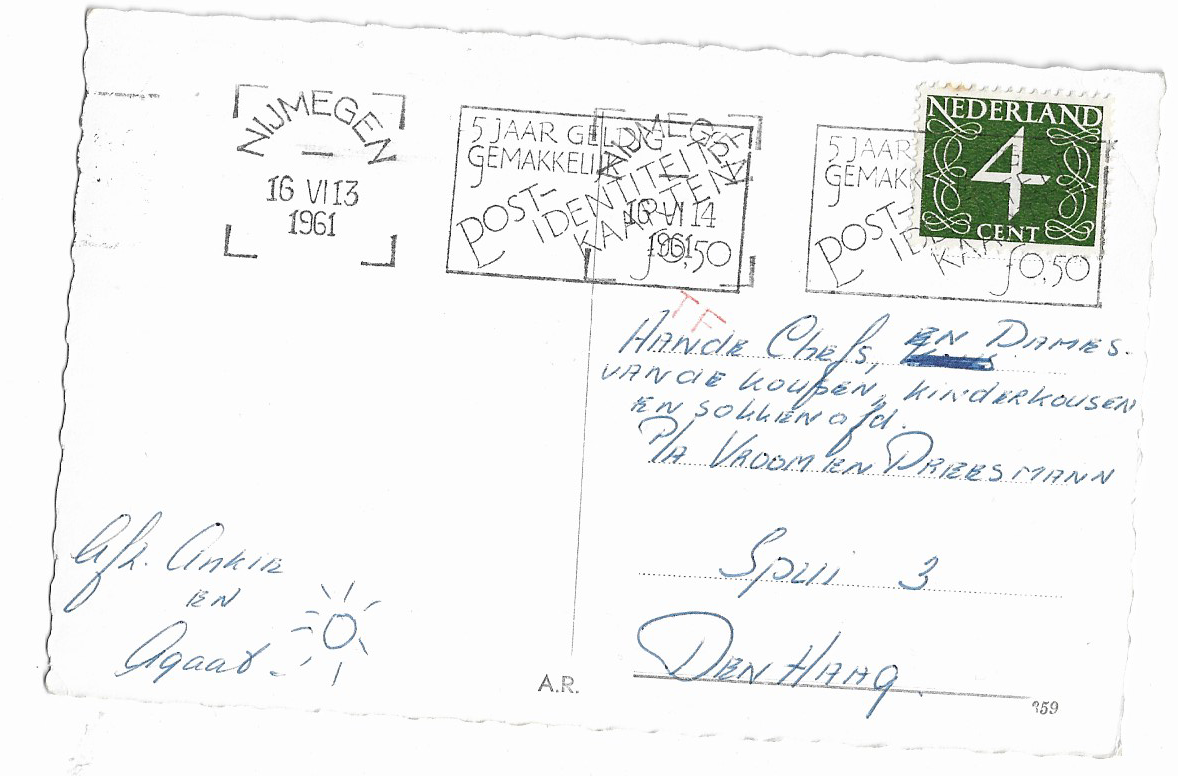 NIJMEGEN
16 VI 13
1961
5 JAAR GELDIG
GEMAKKELIJK
POST-
IDENTITEITS
KAARTEN
f 0,50
NIJMEGEN
16 VI 14
1961
5 JAAR
GEMAKK
POST-
IDE
KAAR
f 0,50
NEDERLAND
4
CENT
TF
AAN DE Chefs, EN DAMES.
VAN DE KOUSEN, KINDERKOUSEN
EN SOKKEN afd.
P/A VROOM EN DREESMANN
Spui 3
DEN HAAG
Afz. Ankie
EN
Agaat.
A.R.
359